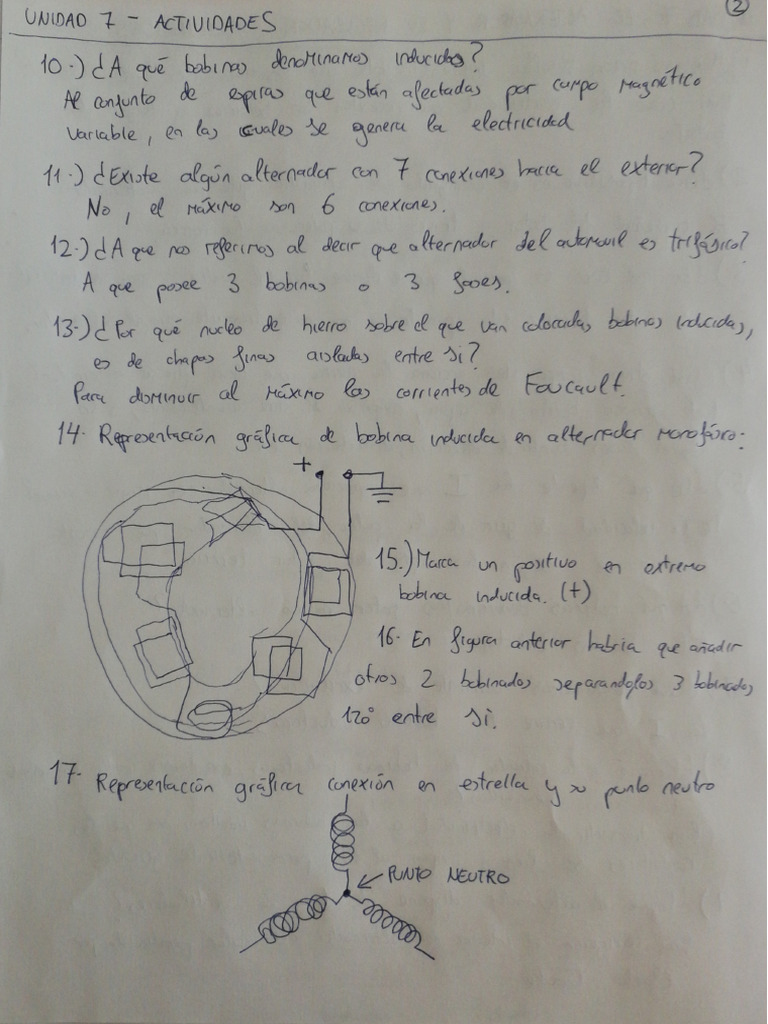 UNIDAD 7 - ACTIVIDADES
2
10.-) ¿A qué bobinas denominamos inducidas?
Al conjunto de espiras que están afectadas por campo magnético
variable, en las cuales se genera la electricidad
11.-) ¿Existe algún alternador con 7 conexiones hacia el exterior?
No, el máximo son 6 conexiones.
12.-) ¿A que nos referimos al decir que alternador del automovil es trifásico?
A que posee 3 bobinas o 3 fases.
13.-) ¿Por qué nucleo de hierro sobre el que van colocadas bobinas inducidas,
es de chapas finas aisladas entre si?
Para disminuir al máximo las corrientes de Foucault.
14.- Representación gráfica de bobina inducida en alternador monofásico:
+
15.) Marca un positivo en extremo
bobina inducida. (+)
16.- En figura anterior habria que añadir
otros 2 bobinados separandolos 3 bobinados
120° entre si.
17.- Representación gráfica conexión en estrella y su punto neutro
PUNTO NEUTRO